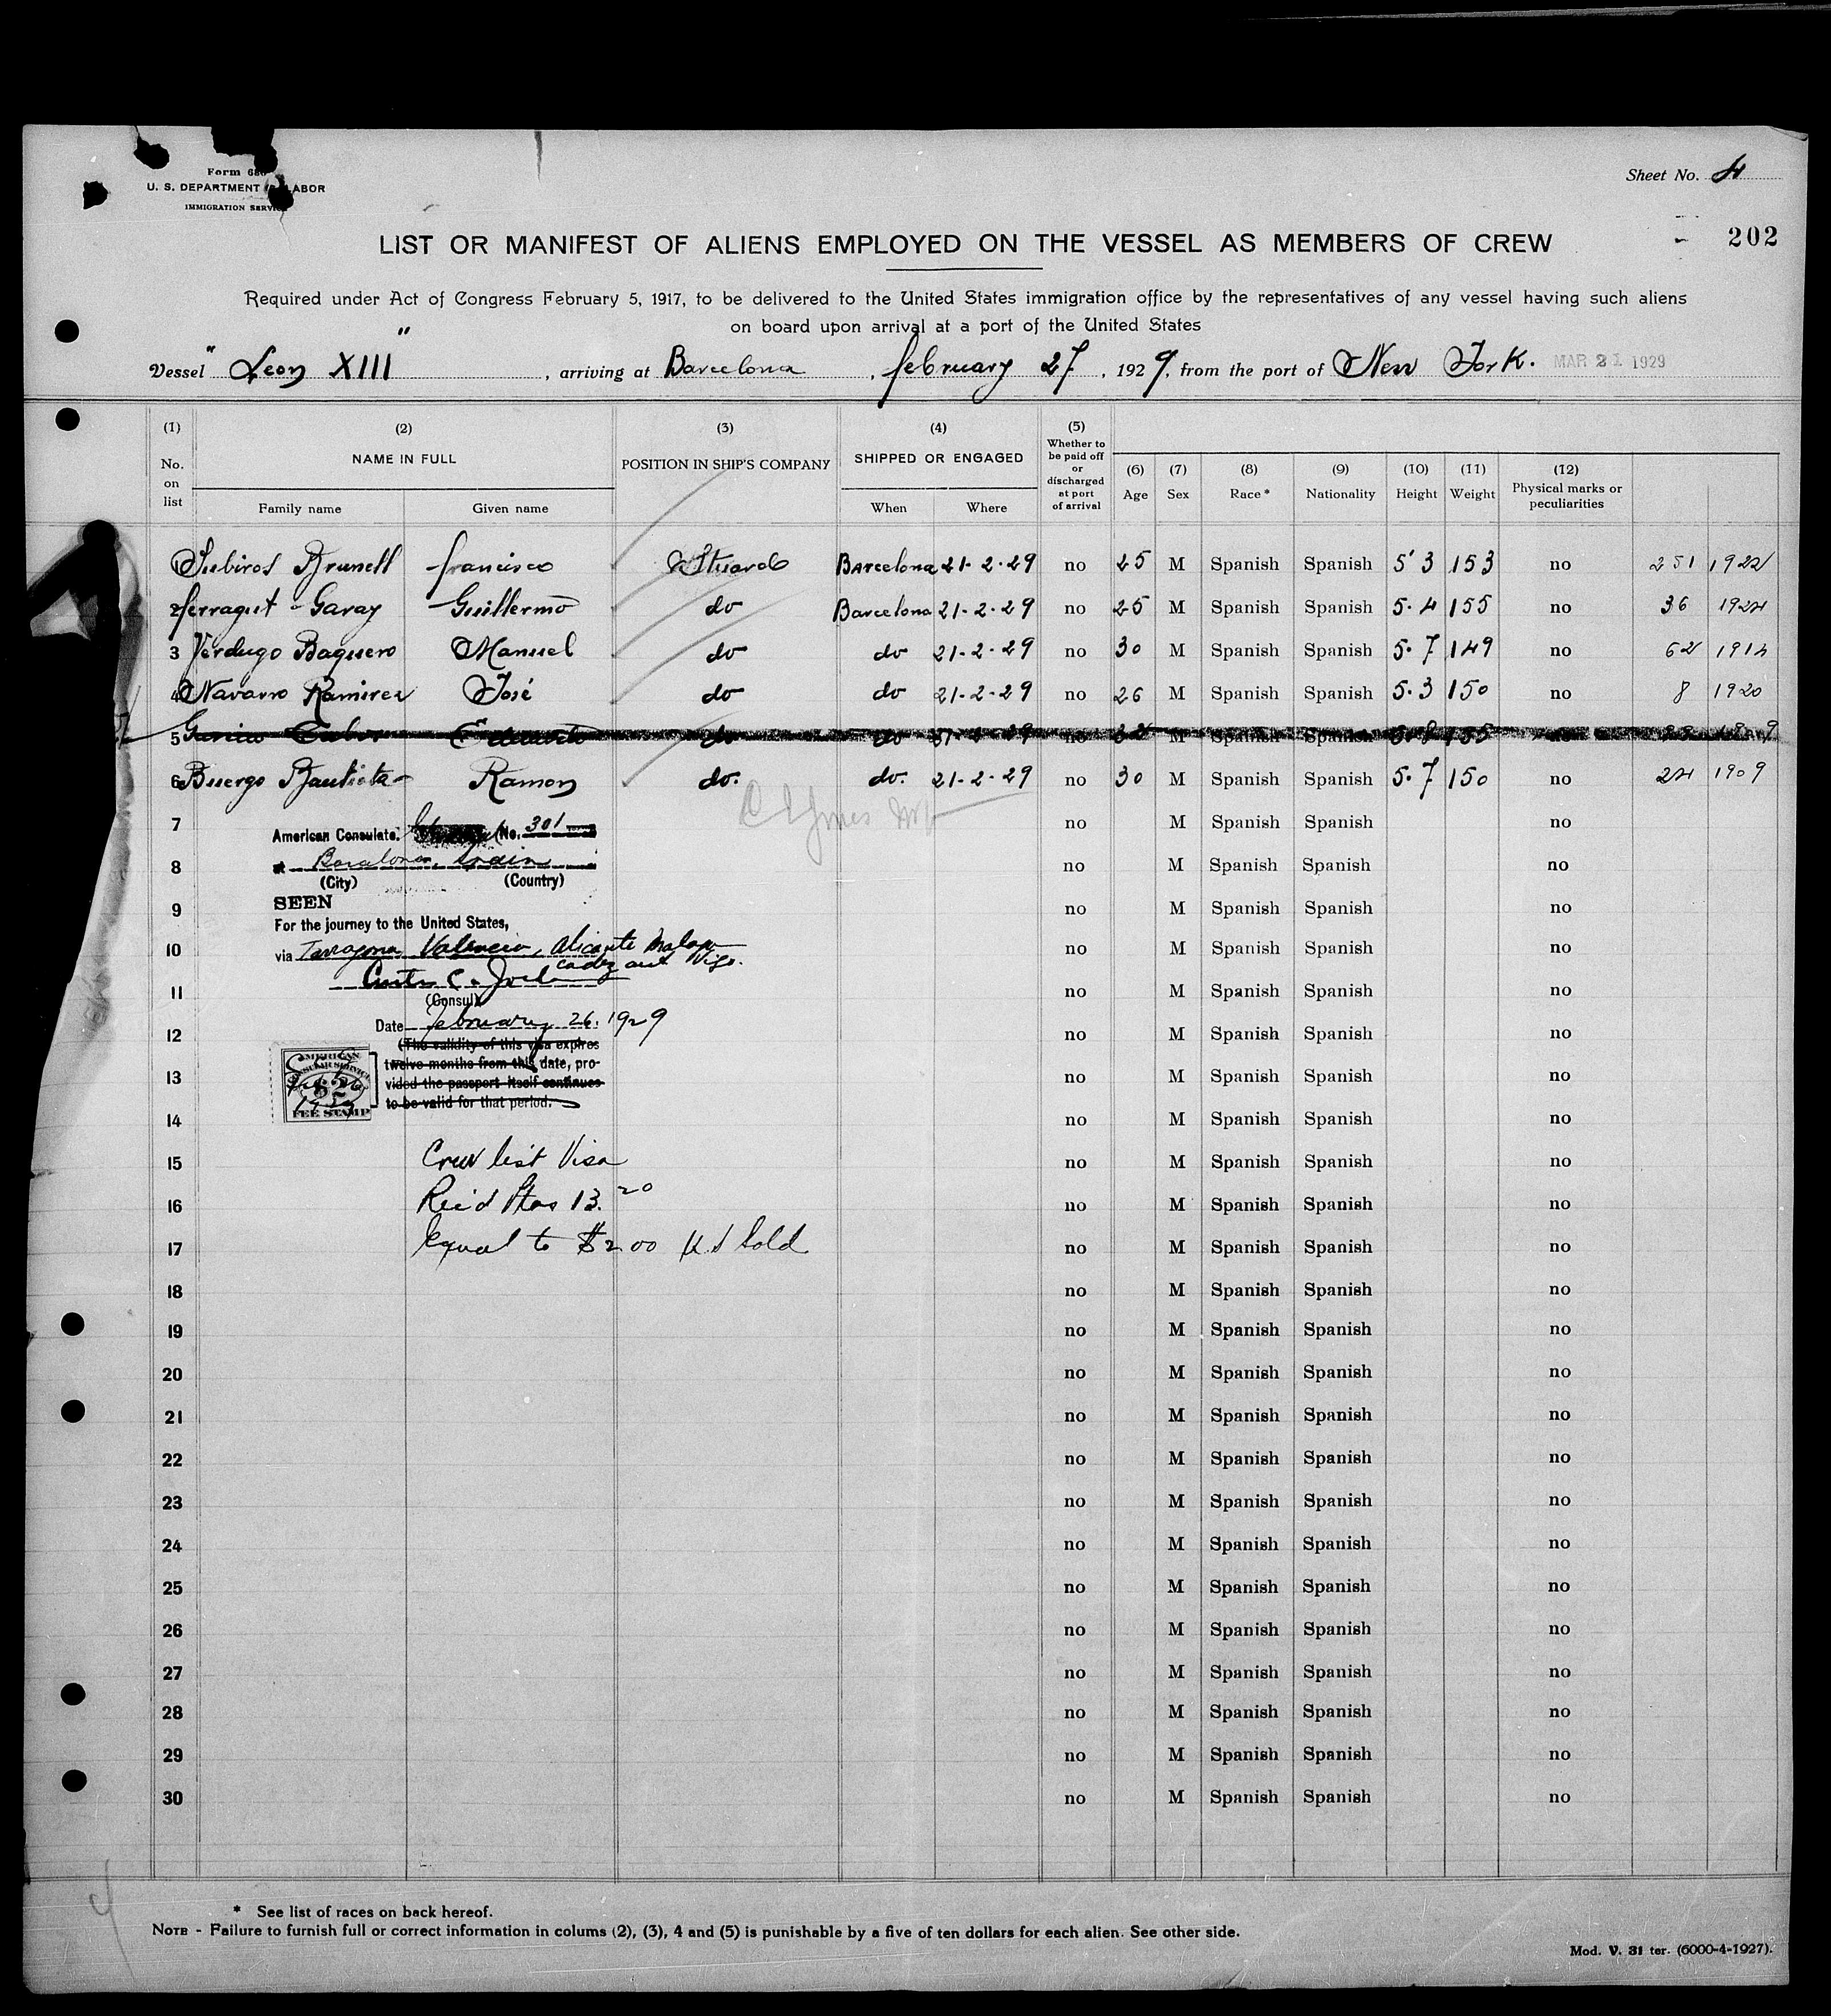 Form 680
U. S. DEPARTMENT OF LABOR
IMMIGRATION SERVICE
Sheet No. 4
202
LIST OR MANIFEST OF ALIENS EMPLOYED ON THE VESSEL AS MEMBERS OF CREW
Required under Act of Congress February 5, 1917, to be delivered to the United States immigration office by the representatives of any vessel having such aliens
on board upon arrival at a port of the United States
Vessel "Leon XIII", arriving at Barcelona, february 27, 1929, from the port of New York. MAR 21 1929
(1) (2) (3) (4) (5) (6) (7) (8) (9) (10) (11) (12)
No. on list NAME IN FULL POSITION IN SHIP'S COMPANY SHIPPED OR ENGAGED Whether to be paid off or discharged at port of arrival Age Sex Race* Nationality Height Weight Physical marks or peculiarities
Family name Given name When Where
1 Subiros Brunell francisco Stuard Barcelona 21-2-29 no 25 M Spanish Spanish 5'3 153 no 251 1922
2 ferragut - Garay Guillermo do Barcelona 21-2-29 no 25 M Spanish Spanish 5.4 155 no 36 1924
3 Verdugo Baquero Manuel do do 21-2-29 no 30 M Spanish Spanish 5.7 149 no 62 1914
4 Navarro Ramirez José do do 21-2-29 no 26 M Spanish Spanish 5.3 150 no 8 1920
5 do do no M Spanish Spanish no
6 Buergo Bautista Ramon do. do. 21-2-29 no 30 M Spanish Spanish 5.7 150 no 24 1909
7 no M Spanish Spanish no
American Consulate. (No. 301
8 no M Spanish Spanish no
at Barcelona, Spain
(City) (Country)
9 no M Spanish Spanish no
SEEN
For the journey to the United States,
10 no M Spanish Spanish no
via Tarragona Valencia, Alicante Malaga
Cadiz and Vigo.
11 no M Spanish Spanish no
(Consul)
12 no M Spanish Spanish no
Date February 26. 1929
(The validity of this visa expires
twelve months from this date, pro-
13 no M Spanish Spanish no
vided the passport itself continues
to be valid for that period.
AMERICAN
CONSULAR SERVICE
$2
FEE STAMP
14 no M Spanish Spanish no
15 Crew list Visa no M Spanish Spanish no
16 Rec'd Ptas 13.20 no M Spanish Spanish no
17 Equal to $2.00 U S Gold no M Spanish Spanish no
18 no M Spanish Spanish no
19 no M Spanish Spanish no
20 no M Spanish Spanish no
21 no M Spanish Spanish no
22 no M Spanish Spanish no
23 no M Spanish Spanish no
24 no M Spanish Spanish no
25 no M Spanish Spanish no
26 no M Spanish Spanish no
27 no M Spanish Spanish no
28 no M Spanish Spanish no
29 no M Spanish Spanish no
30 no M Spanish Spanish no
* See list of races on back hereof.
NOTE - Failure to furnish full or correct information in colums (2), (3), 4 and (5) is punishable by a five of ten dollars for each alien. See other side.
Mod. V. 31 ter. (6000-4-1927).